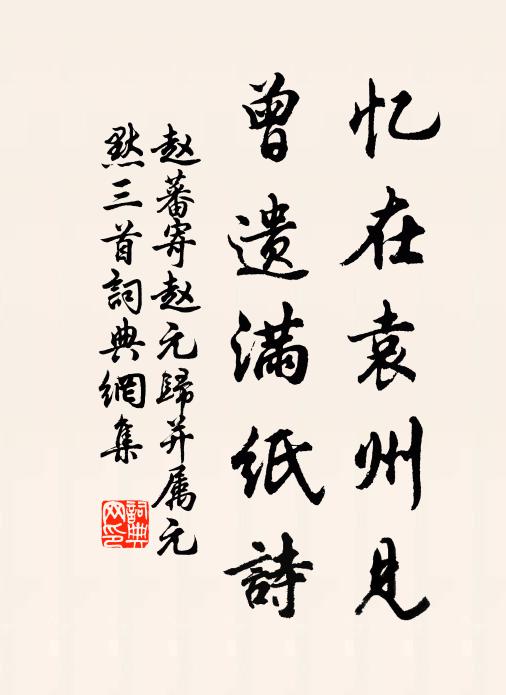 忆在袁州見
曾遗满紙詩
赵蕃寄赵元歸并属元
黙三首詞典網集
詞典网印